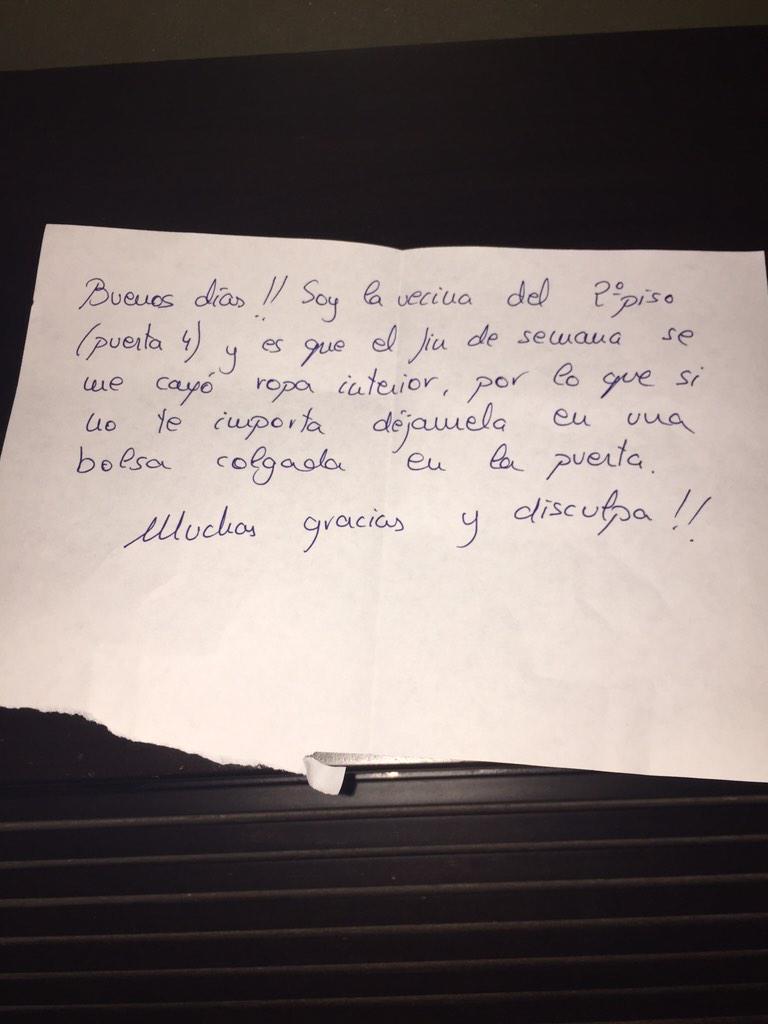 Buenos días!! Soy la vecina del 2º piso
(puerta 4) y es que el fin de semana se
me cayó ropa interior, por lo que si
no te importa déjamela en una
bolsa colgada en la puerta.
Muchas gracias y disculpa!!